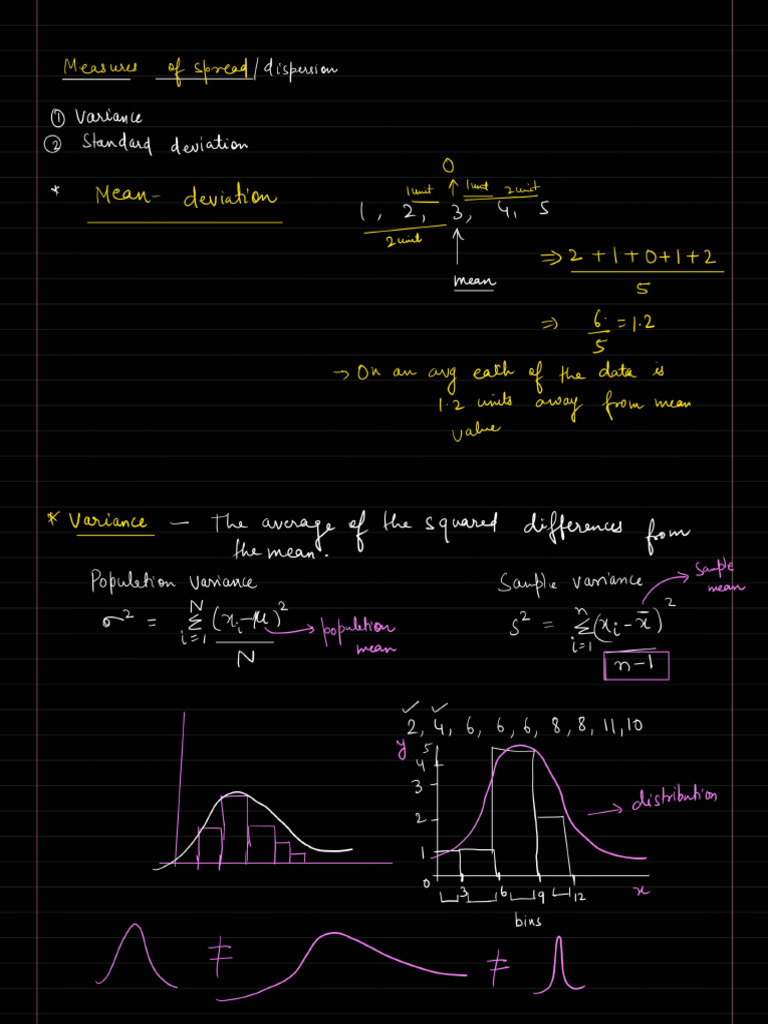 Measures of spread/dispersion
① Variance
② Standard deviation
* Mean-deviation
0
1unit 1unit 2unit
1, 2, 3, 4, 5
2unit
mean
⇒ 2+1+0+1+2
5
⇒ 6 = 1.2
5
→ On an avg each of the data is
1.2 units away from mean
value
* Variance – The average of the squared differences from
the mean.
Population variance
σ² = Σ(xᵢ-μ)²
N
i=1
N
→ population
mean
Sample variance
→ sample
mean
s² = Σ(xᵢ-x̄)²
n
i=1
n-1
2, 4, 6, 6, 6, 8, 8, 11, 10
y
5
4
3
2
1
0
3 6 9 12
x
bins
→ distribution
≠ ≠